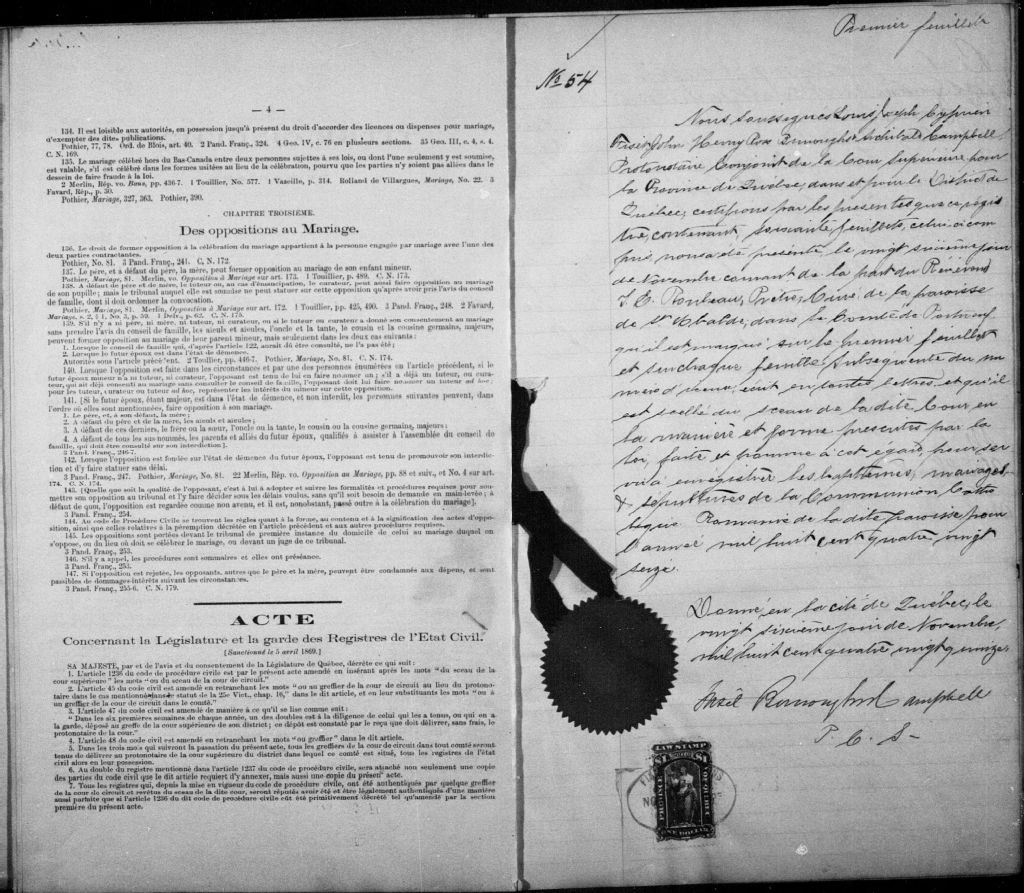 — 4 —
134. Il est loisible aux autorités, en possession jusqu'à présent du droit d'accorder des licences ou dispenses pour mariage,
d'exempter des dites publications.
Pothier, 77, 78. Ord. de Blois, art. 40. 2 Pand. Franç., 324. 4 Geo. IV, c. 76 en plusieurs sections. 35 Geo. III, c. 4, s. 4.
C. N. 169.
135. Le mariage célébré hors du Bas-Canada entre deux personnes sujettes à ses lois, ou dont l'une seulement y est soumise,
est valable, s'il est célébré dans les formes usitées au lieu de la célébration, pourvu que les parties n'y soient pas allées dans le
dessein de faire fraude à la loi.
2 Merlin, Rép. vo. Bans, pp. 436-7. 1 Touillier, No. 577. 1 Vazeille, p. 314. Rolland de Villargues, Mariage, No. 22. 3
Favard, Rép., p. 50.
Pothier, Mariage, 327, 363. Pothier, 390.
CHAPITRE TROISIÈME.
Des oppositions au Mariage.
136. Le droit de former opposition à la célébration du mariage appartient à la personne engagée par mariage avec l'une des
deux parties contractantes.
Pothier, No. 81. 3 Pand. Franç., 241. C. N. 172.
137. Le père, et à défaut du père, la mère, peut former opposition au mariage de son enfant mineur.
Pothier, Mariage, 81. Merlin, vo. Opposition à Mariage sur art. 173. 1 Touillier, p. 489. C. N. 173.
138. A défaut de père et de mère, le tuteur ou, au cas d'émancipation, le curateur, peut aussi faire opposition au mariage
de son pupille; mais le tribunal auquel elle est soumise ne peut statuer sur cette opposition qu'après avoir pris l'avis du conseil
de famille, dont il doit ordonner la convocation.
Pothier, Mariage, 81. Merlin, Opposition à Mariage sur art. 172. 1 Touillier, pp. 425, 490. 3 Pand. Franç., 248. 2 Favard,
Mariage, s. 2, § 1, No. 3, p. 59. 1 Delv., p. 62. C. N. 175.
139. S'il n'y a ni père, ni mère, ni tuteur, ni curateur, ou si le tuteur ou curateur a donné son consentement au mariage
sans prendre l'avis du conseil de famille, les aïeuls et aïeules, l'oncle et la tante, le cousin et la cousine germains, majeurs,
peuvent former opposition au mariage de leur parent mineur, mais seulement dans les deux cas suivants:
1. Lorsque le conseil de famille qui, d'après l'article 122, aurait dû être consulté, ne l'a pas été;
2. Lorsque le futur époux est dans l'état de démence.
Autorités sous l'article précédent. 2 Touillier, pp. 446-7. Pothier, Mariage, No. 81. C. N. 174.
140. Lorsque l'opposition est faite dans les circonstances et par une des personnes énumérées en l'article précédent, si le
futur époux mineur n'a ni tuteur, ni curateur, l'opposant est tenu de lui en faire nommer un; s'il a déjà un tuteur, ou cura-
teur, qui ait déjà consenti au mariage sans consulter le conseil de famille, l'opposant doit lui faire nommer un tuteur ad hoc;
pour les tuteur, curateur ou tuteur ad hoc, représenter les intérêts du mineur sur cette opposition.
141. [Si le futur époux, étant majeur, est dans l'état de démence, et non interdit, les personnes suivantes peuvent, dans
l'ordre où elles sont mentionnées, faire opposition à son mariage.
1. Le père, et, à son défaut, la mère;
2. A défaut du père et de la mère, les aïeuls et aïeules;
3. A défaut de ces derniers, le frère ou la sœur, l'oncle ou la tante, le cousin ou la cousine germains, majeurs;
4. A défaut de tous les sus-nommés, les parents et alliés du futur époux, qualifiés à assister à l'assemblée du conseil de
famille, qui doit être consulté sur son interdiction].
3 Pand. Franç., 246-7.
142. Lorsque l'opposition est fondée sur l'état de démence du futur époux, l'opposant est tenu de promouvoir son interdic-
tion et d'y faire statuer sans délai.
3 Pand. Franç., 247. Pothier, Mariage, No. 81. 22 Merlin, Rép. vo. Opposition au Mariage, pp. 88 et suiv., et No. 4 sur art.
174. C. N. 174.
143. [Quelle que soit la qualité de l'opposant, c'est à lui à adopter et suivre les formalités et procédures requises pour sou-
mettre son opposition au tribunal et l'y faire décider sous les délais voulus, sans qu'il soit besoin de demande en main-levée; à
défaut de quoi, l'opposition est regardée comme non avenu, et il est, nonobstant, passé outre à la célébration du mariage].
3 Pand. Franç., 254.
144. Au code de Procédure Civile se trouvent les règles quant à la forme, au contenu et à la signification des actes d'oppo-
sition, ainsi que celles relatives à la péremption décrétée en l'article précédent et aux autres procédures requises.
145. Les oppositions sont portées devant le tribunal de première instance du domicile de celui au mariage duquel on
s'oppose, ou du lieu où doit se célébrer le mariage, ou devant un juge de ce tribunal.
3 Pand. Franç., 253.
146. S'il y a appel, les procédures sont sommaires et elles ont préséance.
3 Pand. Franç., 253.
147. Si l'opposition est rejetée, les opposants, autres que le père et la mère, peuvent être condamnés aux dépens, et sont
passibles de dommages-intérêts suivant les circonstances.
3 Pand. Franç., 255-6. C. N. 179.
ACTE
Concernant la Législature et la garde des Registres de l'Etat Civil.
[Sanctionné le 5 avril 1869.]
SA MAJESTE, par et de l'avis et du consentement de la Législature de Québec, décrète ce qui suit:
1. L'article 1236 du code de procédure civile est par le présent acte amendé en insérant après les mots "du sceau de la
cour supérieure" les mots "ou du sceau de la cour de circuit."
2. L'article 45 du code civil est amendé en retranchant les mots "ou au greffier de la cour de circuit au lieu du protono-
taire dans le cas mentionné dans le statut de la 25e Vict., chap. 16," dans le dit article, et en leur substituant les mots "ou à
un greffier de la cour de circuit dans le comté."
3. L'article 47 du code civil est amendé de manière à ce qu'il se lise comme suit:
"Dans les six premières semaines de chaque année, un des doubles est à la diligence de celui qui les a tenus, ou qui en a
la garde, déposé au greffe de la cour supérieure de son district; ce dépôt est constaté par le reçu que doit délivrer, sans frais, le
protonotaire de la cour."
4. L'article 48 du code civil est amendé en retranchant les mots "ou greffier" dans le dit article.
5. Dans les trois mois qui suivront la passation du présent acte, tous les greffiers de la cour de circuit dans tout comté seront
tenus de délivrer au protonotaire de la cour supérieure du district dans lequel ce comté est situé, tous les registres de l'état
civil alors en leur possession.
6. Au double du registre mentionné dans l'article 1237 du code de procédure civile, sera attaché non seulement une copie
des parties du code civil que le dit article requiert d'y annexer, mais aussi une copie du présent acte.
7. Tous les registres qui, depuis la mise en vigueur du code de procédure civile, ont été authentiqués par quelque greffier
de la cour de circuit et revêtus du sceau de la dite cour, seront réputés avoir été et être légalement authentiqués d'une manière
aussi parfaite que si l'article 1236 du dit code de procédure civile eût été primitivement décrété tel qu'amendé par la section
première du présent acte.
Premier feuillet
No 54
Nous soussignés Louis Joseph Cyprien
Fiset, John Henry Rose Burroughs & Archibald Campbell
Protonotaire Conjoint de la Cour Supérieure pour
la Province de Québec, dans et pour le District de
Québec, certifions par les présentes que ce régis
tre, contenant soixante feuillets, celui-ci com
pris, nous a été présenté le vingt sixième jour
de Novembre courant de la part du Révérend
Prêtre, Curé de la paroisse
de St Ubalde, dans le Comté de Portneuf
qu'il est marqué, sur le premier feuillet
et sur chaque feuillet subséquent du nu
méro d'icelui, écrit en toutes lettres, et qu'il
est scellé du sceau de la dite Cour en
la manière et forme prescrites par la
loi, faite et pourvue à cet égard, pour ser
vir à enregistrer les baptêmes, mariages
& sépultures de la Communion Catho
lique Romaine de la dite paroisse pour
l'année mil huit cent quatre vingt
seize.
Donné en la cité de Québec, le
vingt sixième jour de Novembre,
mil huit cent quatre vingt quinze
Fiset Burroughs & Campbell
P. C. S.
LAW STAMP
$1 $1
PROVINCE OF QUEBEC
ONE DOLLAR